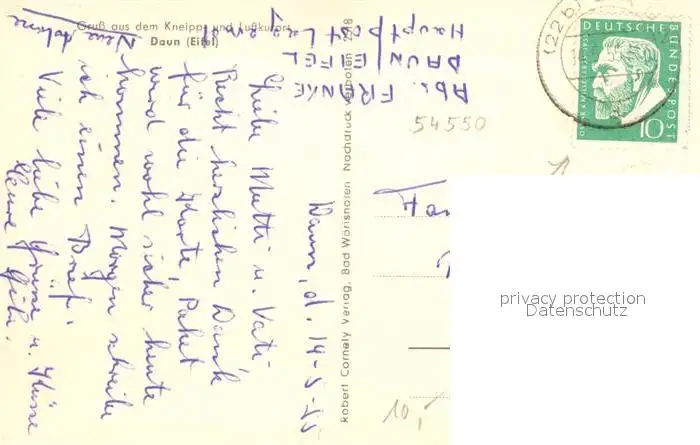 Gruß aus dem Kneipp- und Luftkurort
Daun (Eifel)
Abs. FRANKE
DAUN/EIFEL
Hauptpostlagernd
Neue Adresse
Daun, d. 19-5-55
Liebe Mutti u. Vati.
Recht herzlichen Dank
für die Karte, Paket
wird wohl sicher heute
kommen. Morgen schreibe
ich einen Brief.
Viele liebe Grüsse u. Küsse
Robert Cornely Verlag, Bad Wörishofen Nachdruck verboten
54550
(22b)
DEUTSCHE
BUNDESPOST
OSKAR V. MILLER 1855-1955
10
10,-
privacy protection
Datenschutz